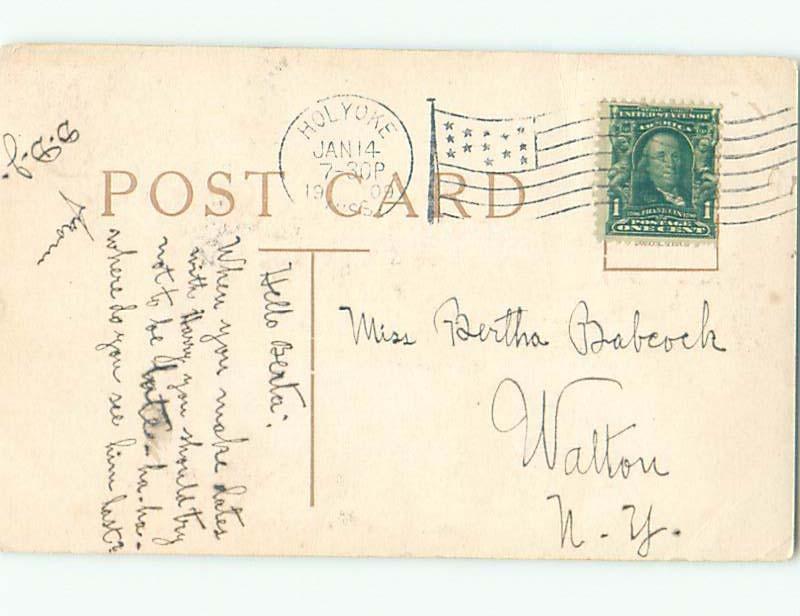 HOLYOKE
JAN 14
7-30P
1909
MASS.
UNITED STATES OF
AMERICA
1 FRANKLIN 1
POSTAGE
ONE CENT
POST CARD
Miss Bertha Babcock
Walton
N.Y.
Hello Berta:
When you make dates
with Harry you should try
not to be late - ha-ha-
where do you see him last?